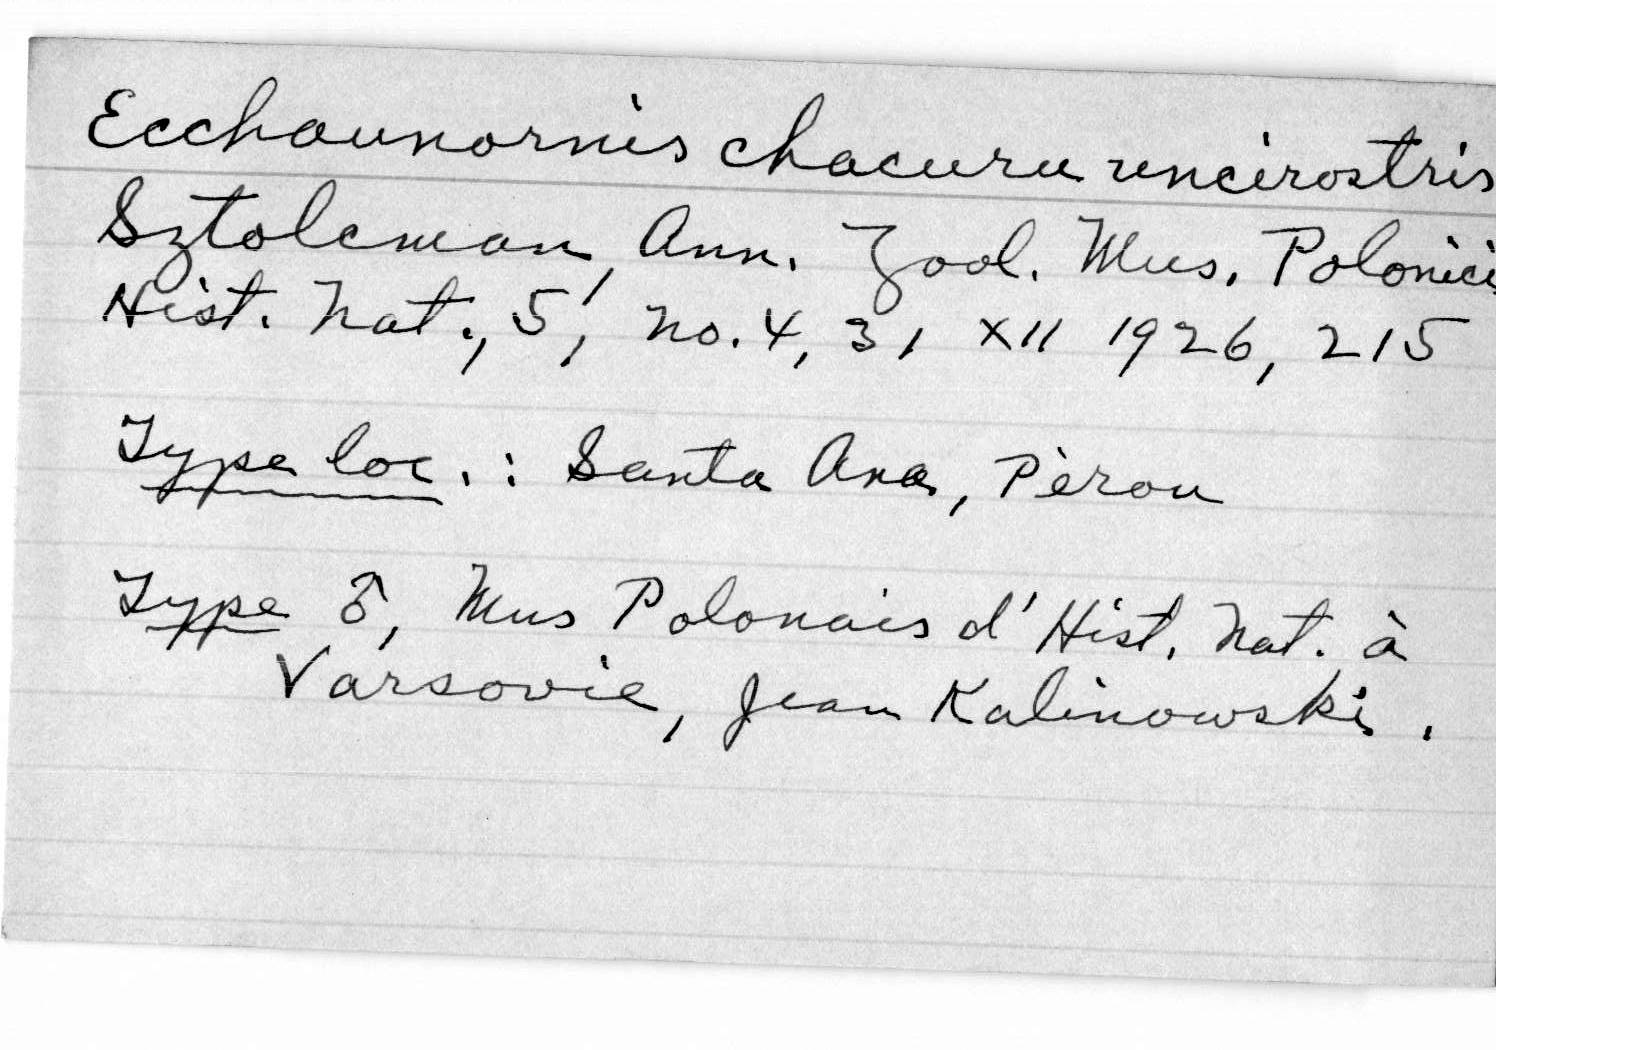 Ecchaunornis chacuru uncirostris
Sztolcman, Ann. Zool. Mus. Polonici
Hist. Nat., 5, no. 4, 31 XII 1926, 215
Type loc. : Santa Ana, Pèrou
Type ♂, Mus Polonais d'Hist. Nat. à
Varsovie, Jean Kalinowski.